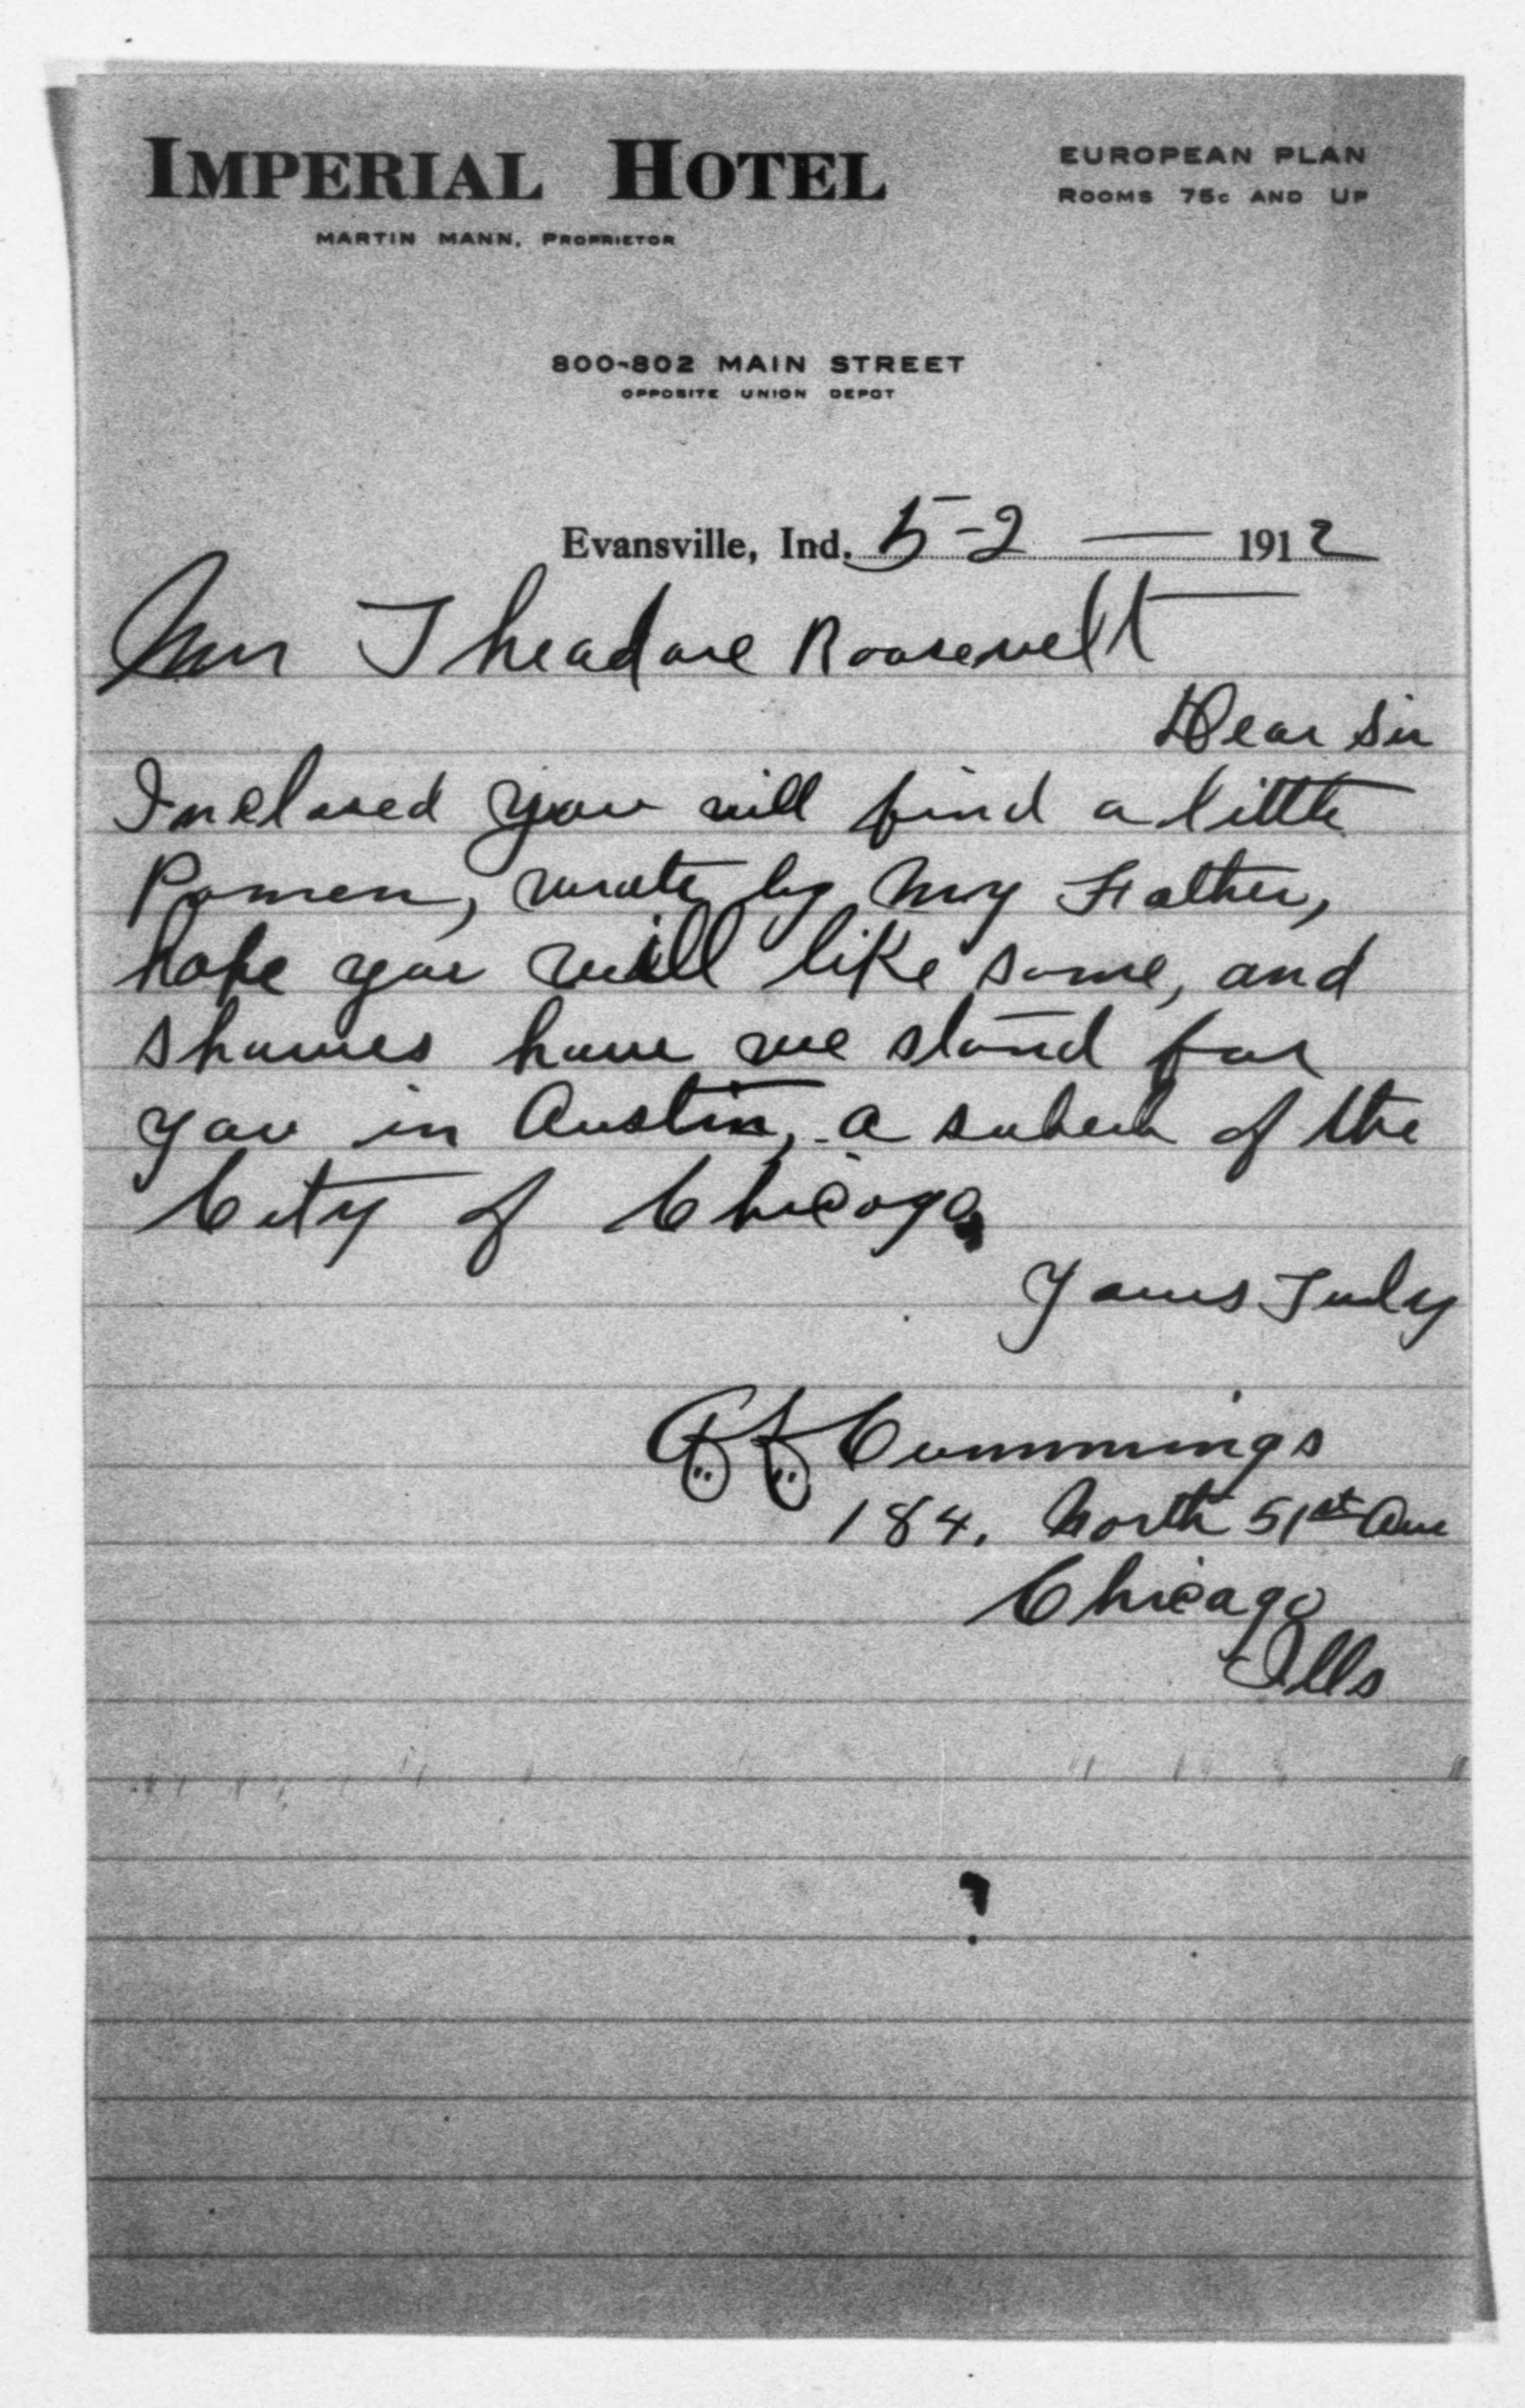 IMPERIAL HOTEL
EUROPEAN PLAN
ROOMS 75c AND UP
MARTIN MANN, PROPRIETOR
800-802 MAIN STREET
OPPOSITE UNION DEPOT
Evansville, Ind. 5-2 — 1912
Mr Theadore Roosevelt
Dear Sir
Inclosed you will find a little
Pomen, wrote by My Father,
hope you will like same, and
shows how we stand for
you in Austin, a suburb of the
City of Chicago
Yours Truly
Cummings
184, North 51st Ave
Chicago
Ills